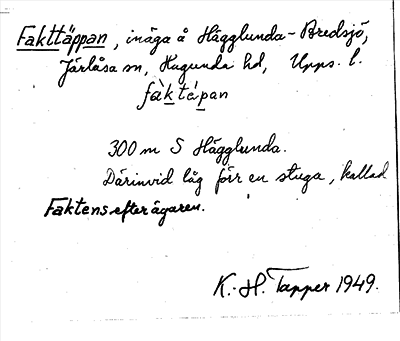 Fakttäppan, inäga å Hägglunda-Bredsjö,
Järlåsa sn, Hagunda hd, Upps. l.
fàktápan
300 m S Hägglunda.
Därinvid låg förr en stuga, kallad
Faktens efter ägaren.
K.-H. Tapper 1949.